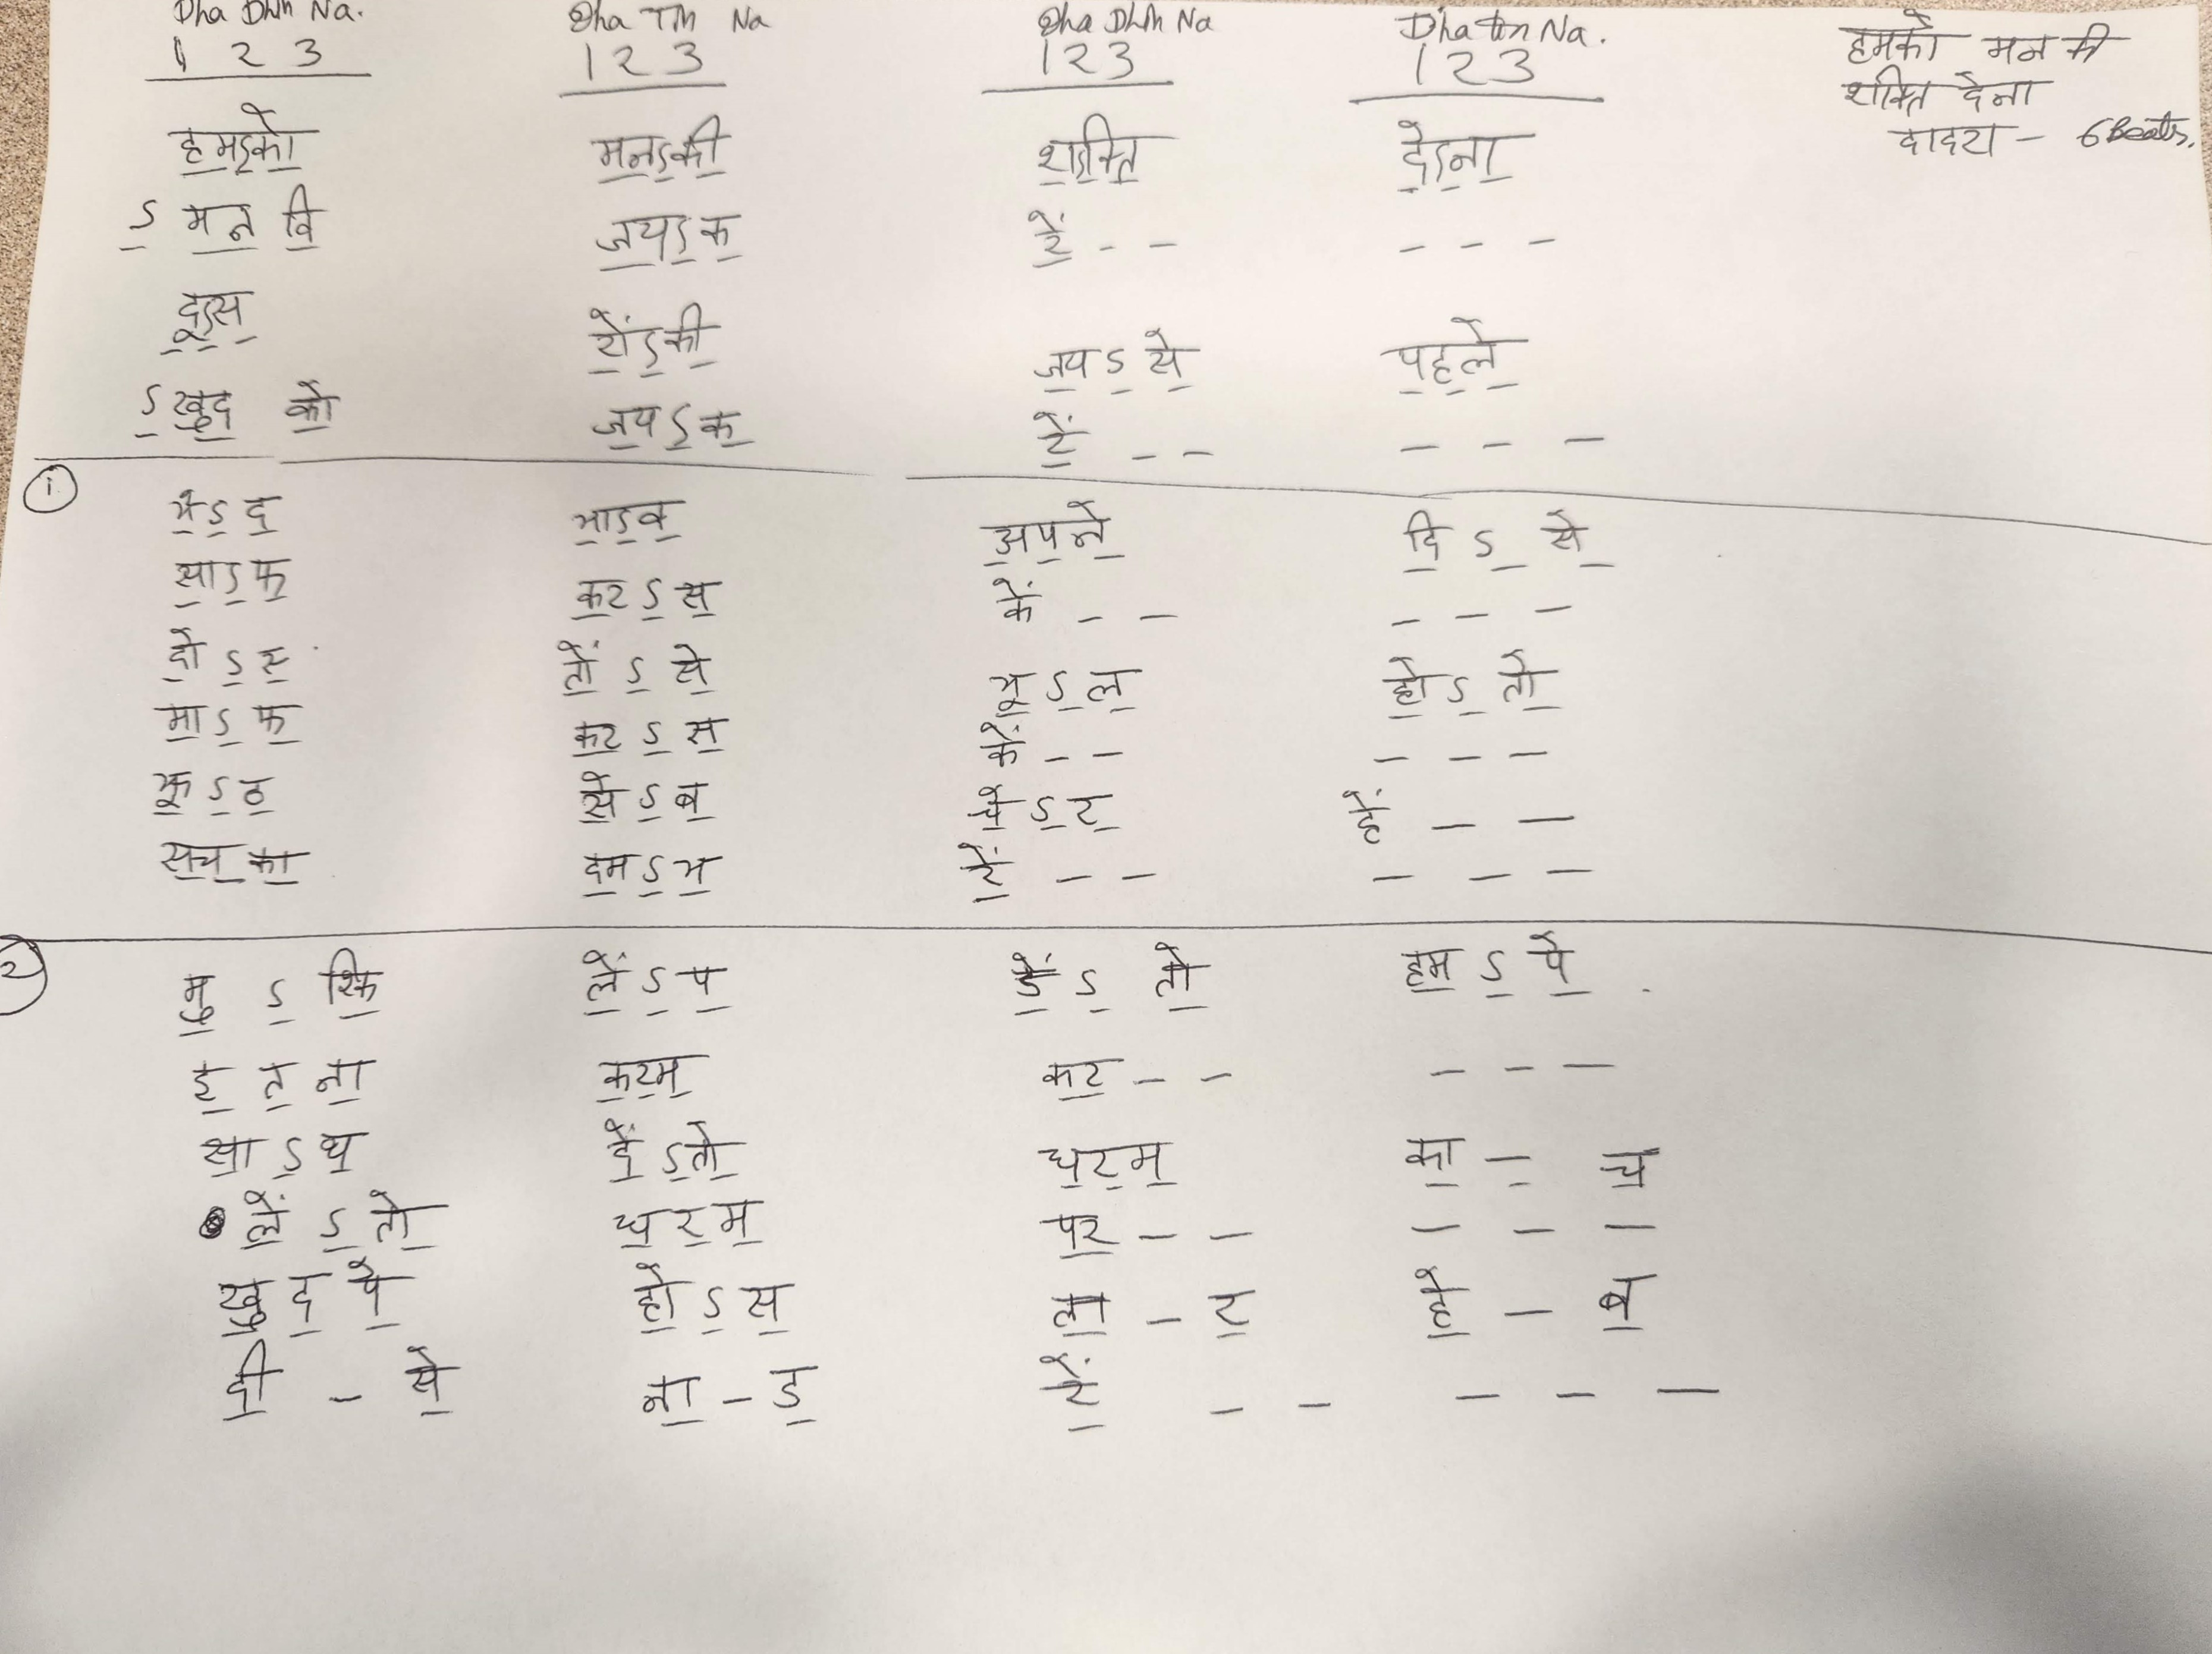 Dha Dhin Na. Dha Tin Na Dha Dhin Na Dha tin Na. हमको मन की
1 2 3 1 2 3 1 2 3 1 2 3 शक्ति देना
दादरा - 6 Beats.
हमऽको मनऽकी शऽक्ति देऽना
ऽ मन वि जयऽक रें - - - - -
दूऽस रोंऽकी जयऽसे पहले
ऽखुद को जयऽक रें - - - - -
1
भेऽद भाऽव अपने दि ऽ से
साऽफ करऽस कें - - - - -
दोऽस तोंऽसे भूऽल होऽतो
माऽफ करऽस कें - - - - -
झूऽठ सेऽब चेऽर हें - -
सच का दमऽभ रें - - - - -
2
मु ऽ श्कि लेंऽप डेंऽतो हमऽपे
इ त ना करम कर - - - - -
साऽथ देंऽतो धरम का - च
लेंऽतो धरम पर - - - - -
खुद पे होऽस ला - र हे - ब
दी - से ना - ड रें - - - - -